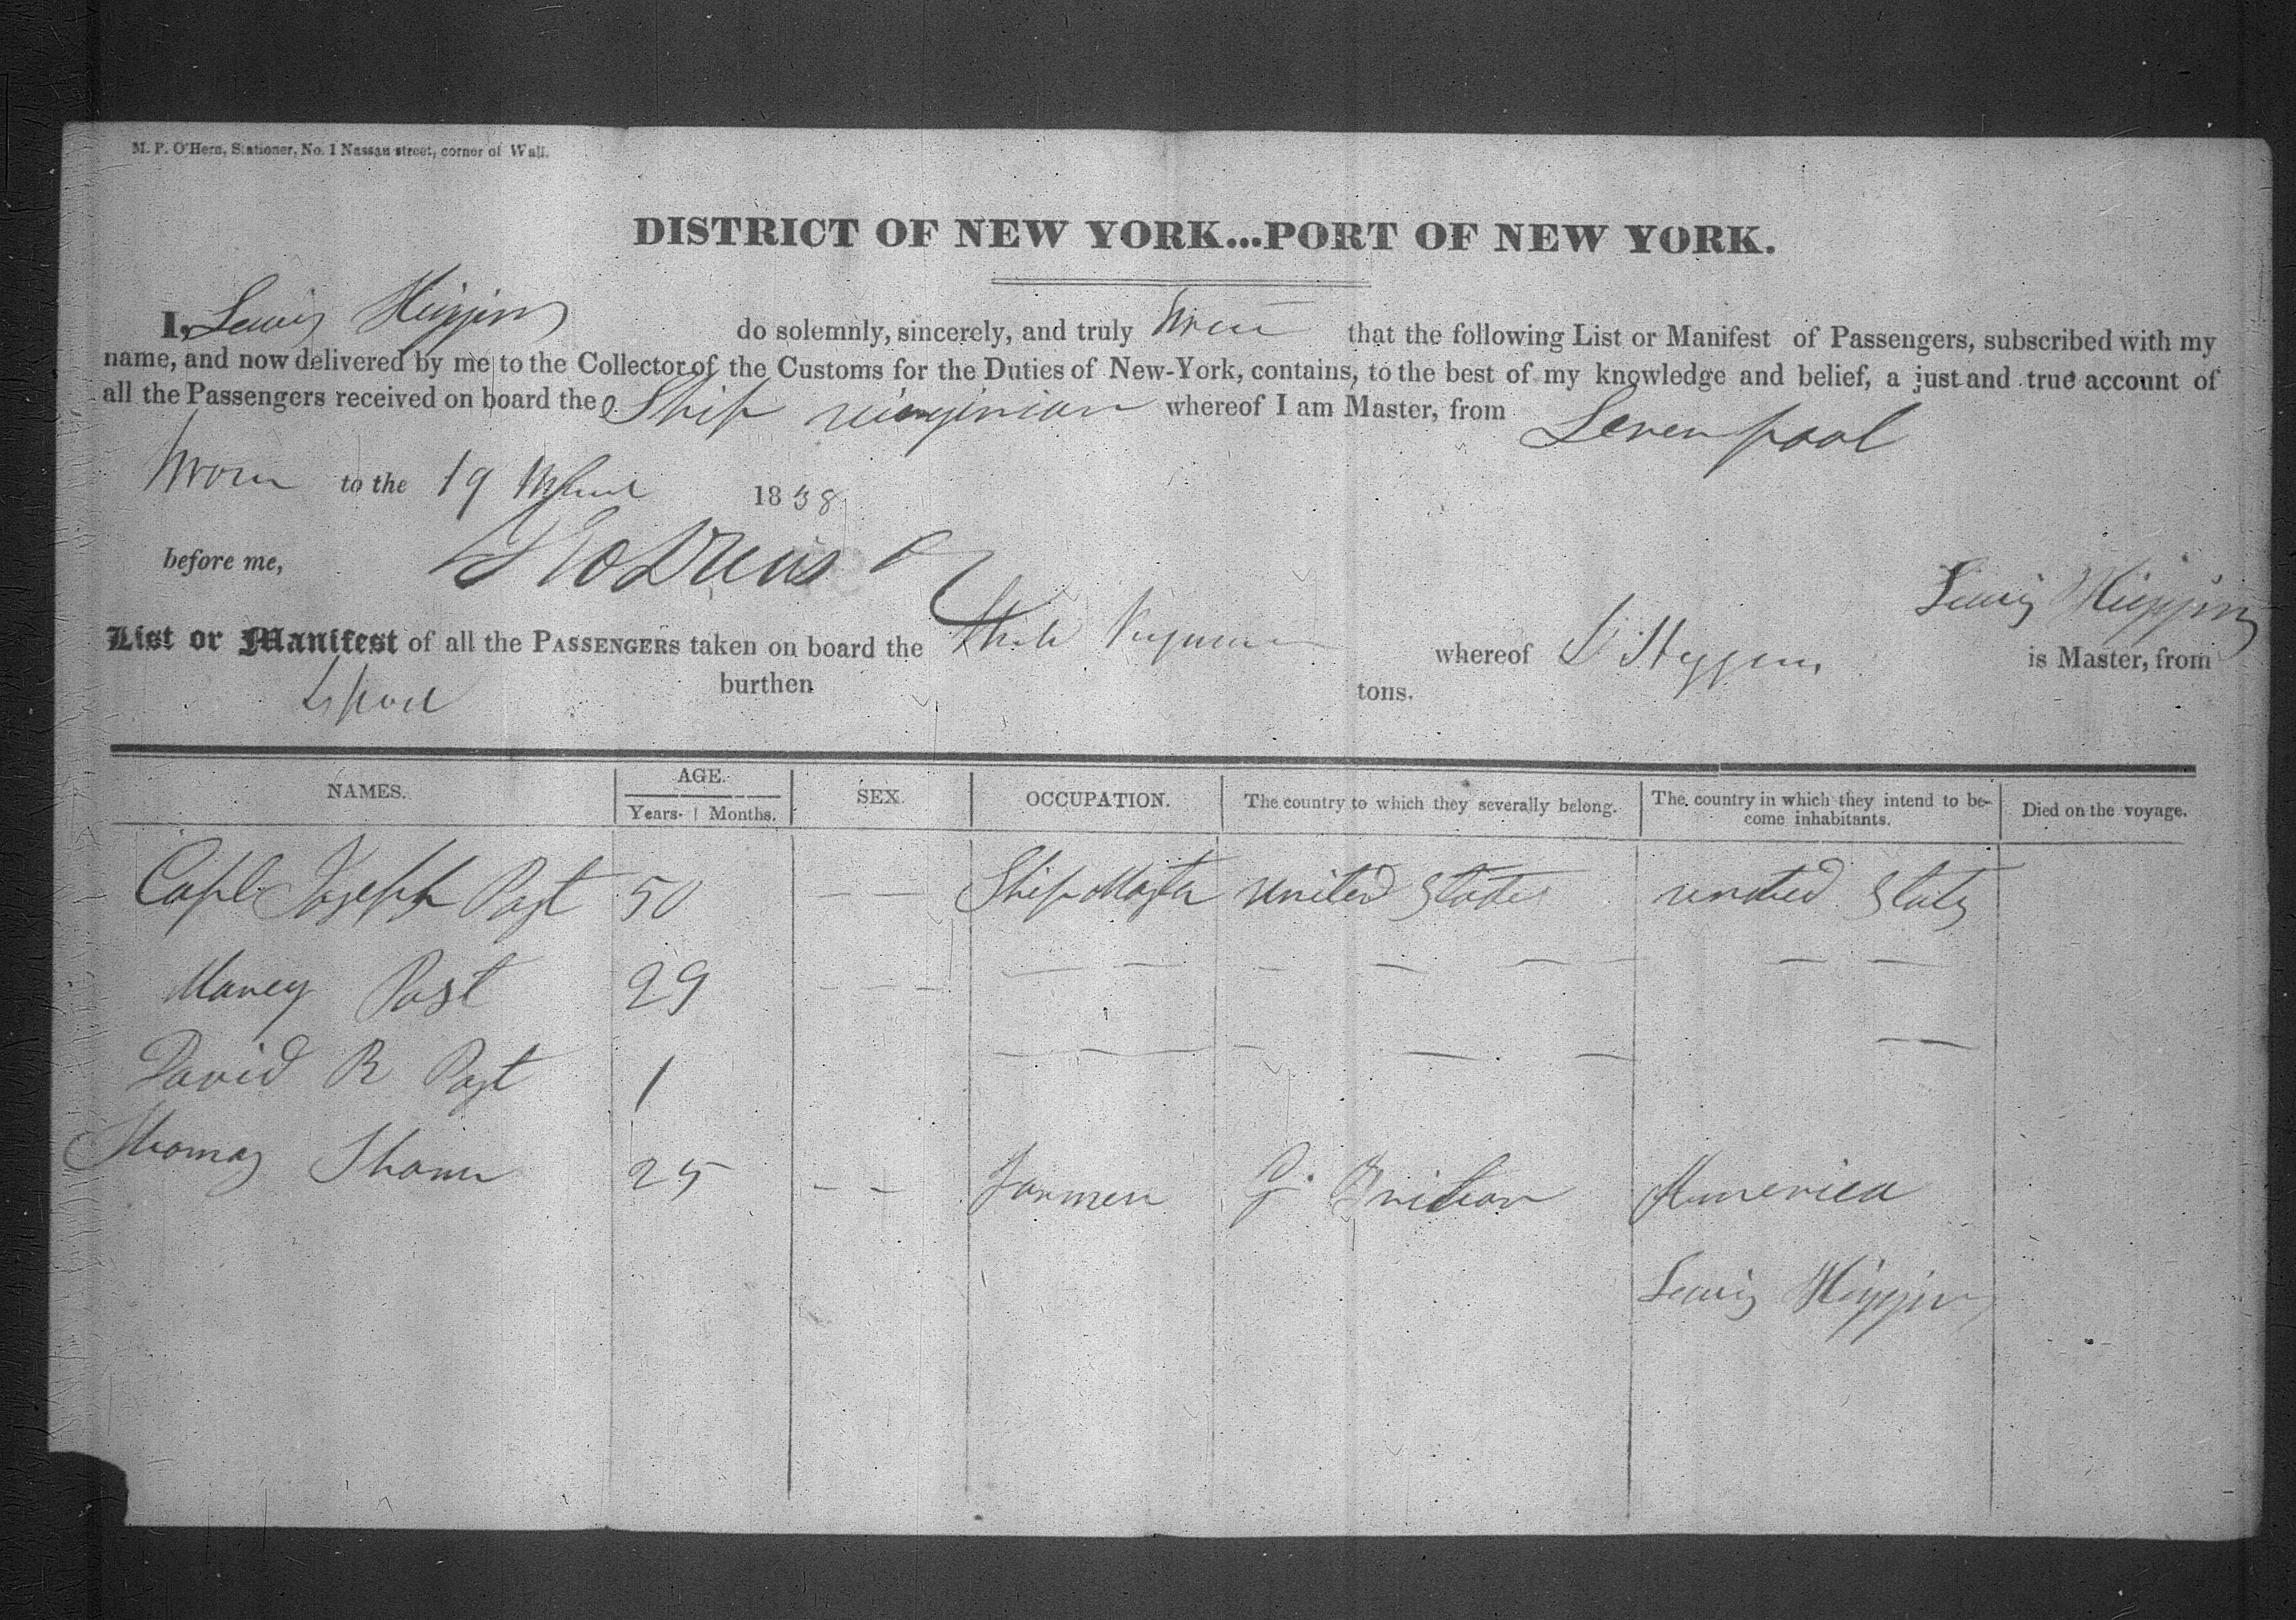 M. P. O'Hern, Stationer, No. 1 Nassau street, corner of Wall.
DISTRICT OF NEW YORK...PORT OF NEW YORK.
I, Lewis Higgins do solemnly, sincerely, and truly that the following List or Manifest of Passengers, subscribed with my
name, and now delivered by me to the Collector of the Customs for the Duties of New-York, contains, to the best of my knowledge and belief, a just and true account of
all the Passengers received on board the Ship virginian whereof I am Master, from Leverpool
Sworn to the 19 1838
before me,
Lewis Higgins
List or Manifest of all the PASSENGERS taken on board the Ship Virginian whereof L Higgins is Master, from
Lpool burthen tons.
NAMES. AGE. SEX. OCCUPATION. The country to which they severally belong. The country in which they intend to be- Died on the voyage.
Years. Months. come inhabitants.
Capt Joseph Post 50 — — Ship Master United States united States
Post 29 — — —
David R Post 1
Thomas 25 — — Farmer G. Britian America
Lewis Higgins